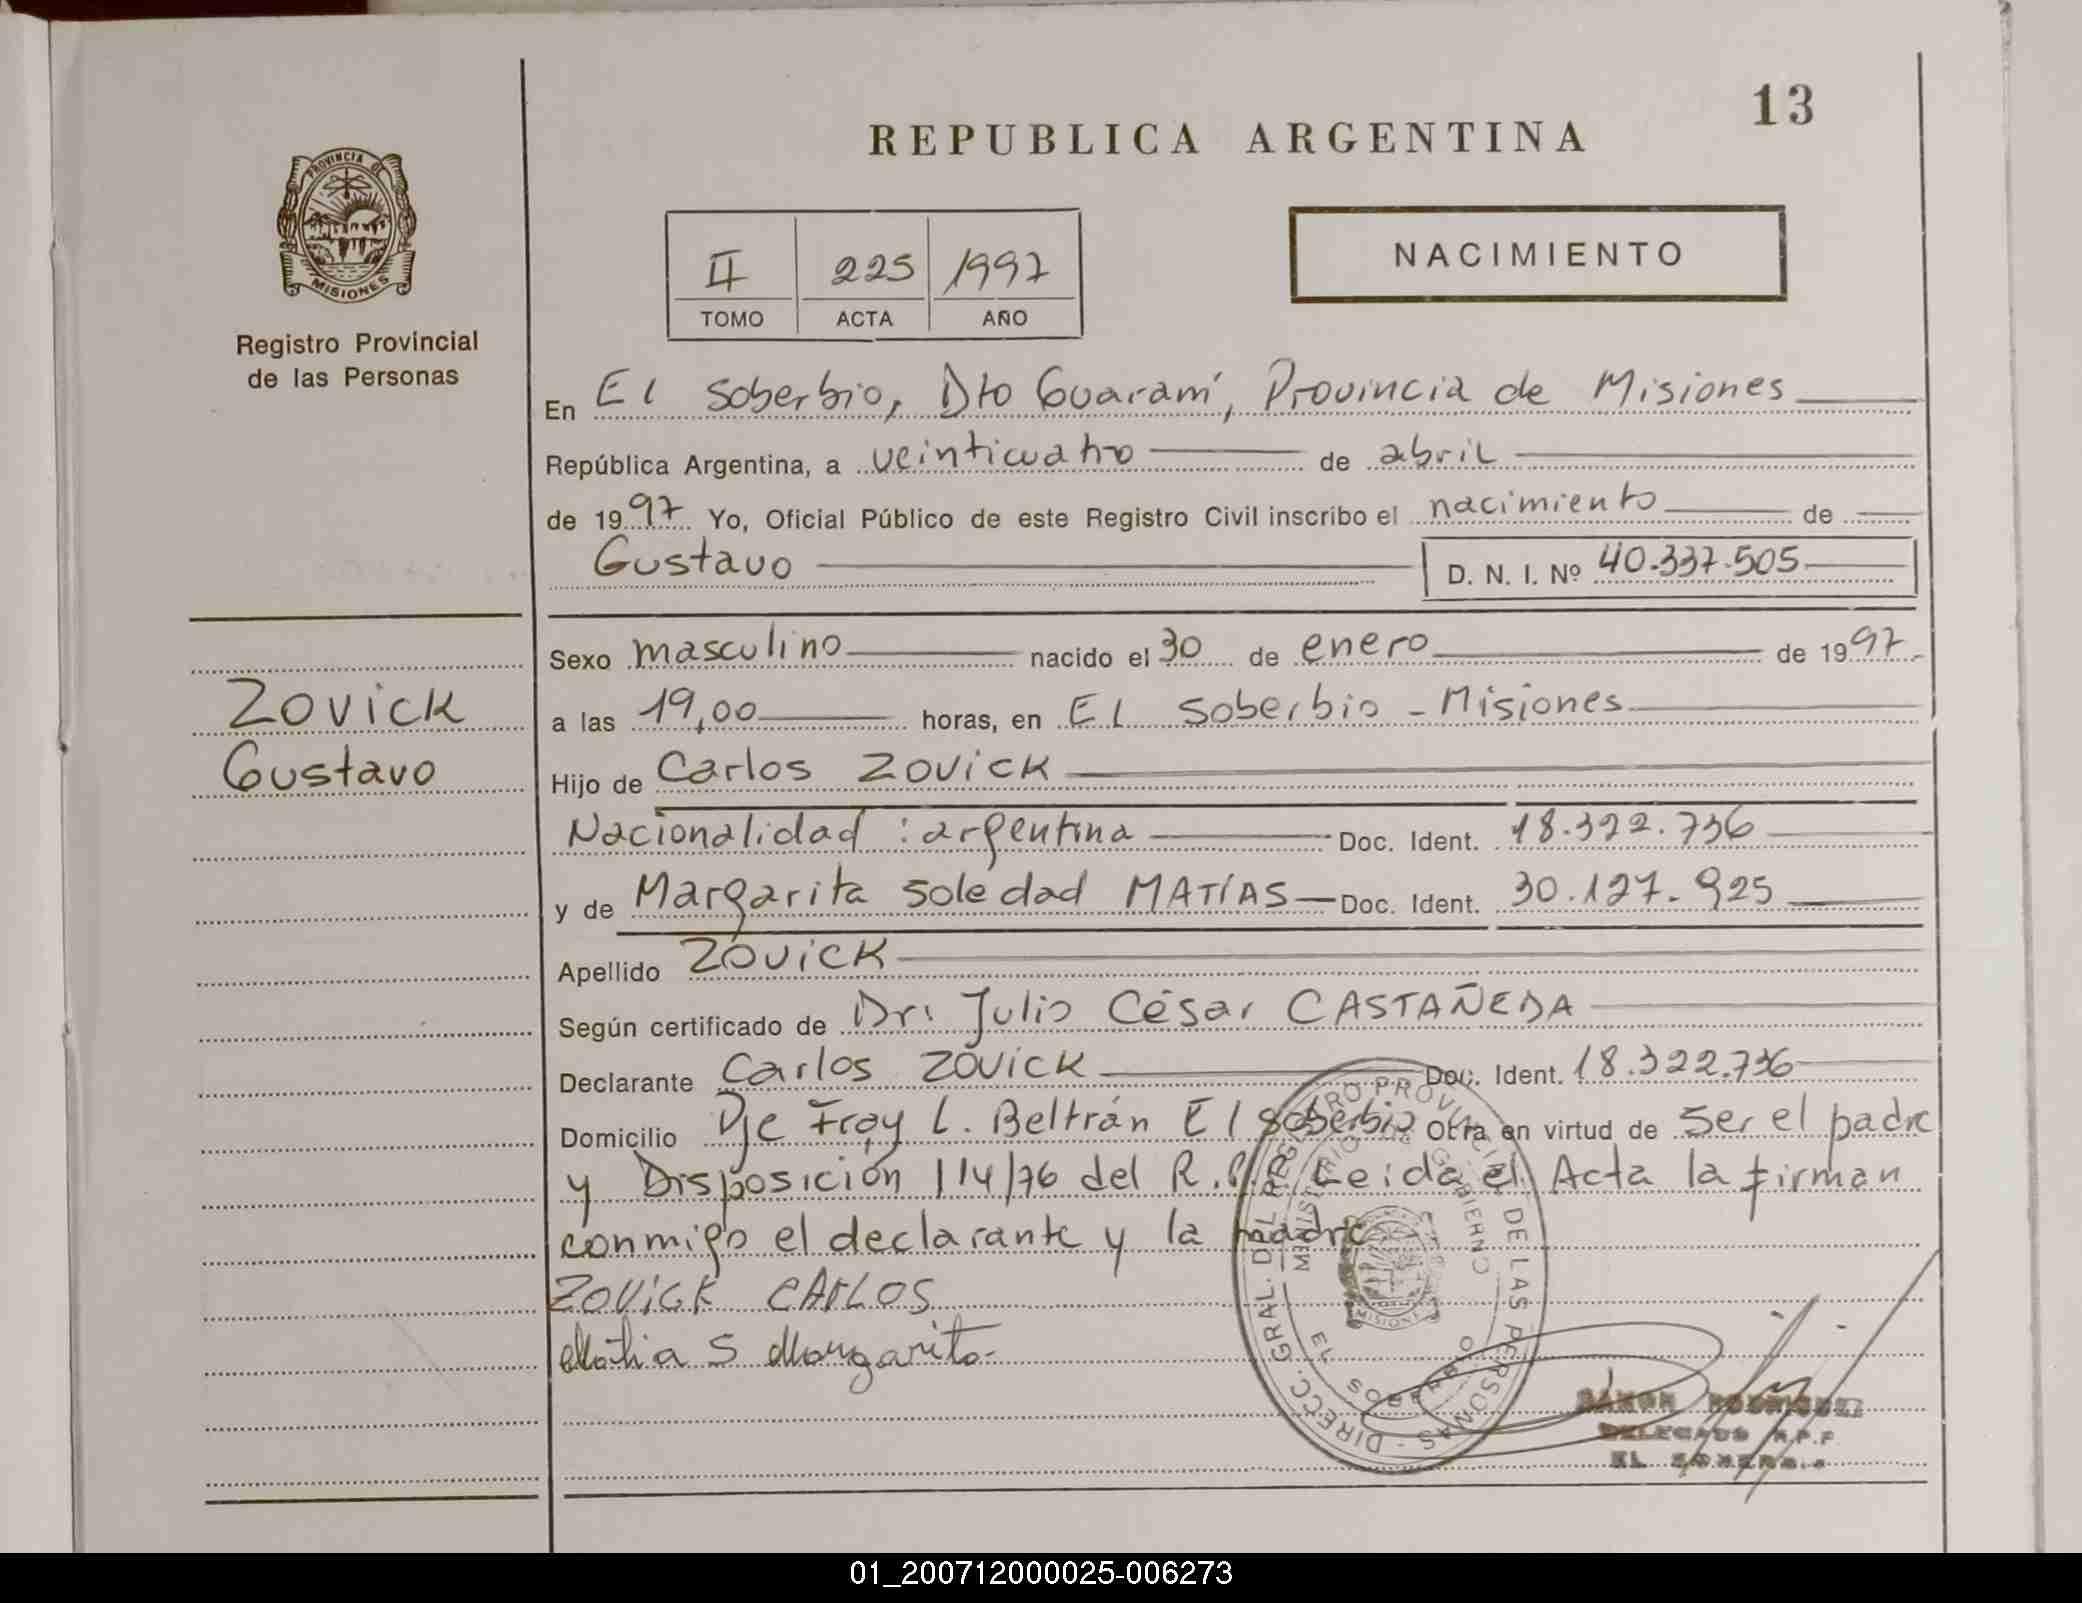 13
REPUBLICA ARGENTINA
PROVINCIA DE
MISIONES
Registro Provincial
de las Personas
NACIMIENTO
II 225 1997
TOMO ACTA AÑO
En El Soberbio, Dto Guaraní, Provincia de Misiones
República Argentina, a veinticuatro de abril
de 1997 Yo, Oficial Público de este Registro Civil inscribo el nacimiento de
Gustavo D. N. I. Nº 40.337.505
Sexo masculino nacido el 30 de enero de 1997
ZOVICK
Gustavo
a las 19,00 horas, en El Soberbio - Misiones
Hijo de Carlos ZOVICK
Nacionalidad: argentina Doc. Ident. 18.322.736
y de Margarita Soledad MATÍAS Doc. Ident. 30.127.925
Apellido ZOVICK
Según certificado de Dr: Julio César CASTAÑEDA
Declarante Carlos ZOVICK Doc. Ident. 18.322.736
Domicilio Pje Fray L. Beltrán El Soberbio Otra en virtud de ser el padre
y Disposición 114/76 del R.P. Leida el Acta la firman
conmigo el declarante y la madre
ZOVICK CARLOS
Matia S Margarita
DIRECC. GRAL. DEL REGISTRO PROVINCIAL DE LAS PERSONAS
MINISTERIO DE GOBIERNO
MISIONES
EL SOBERBIO
RAMON RODRIGUEZ
DELEGADO R.P.P.
EL SOBERBIO
01_200712000025-006273